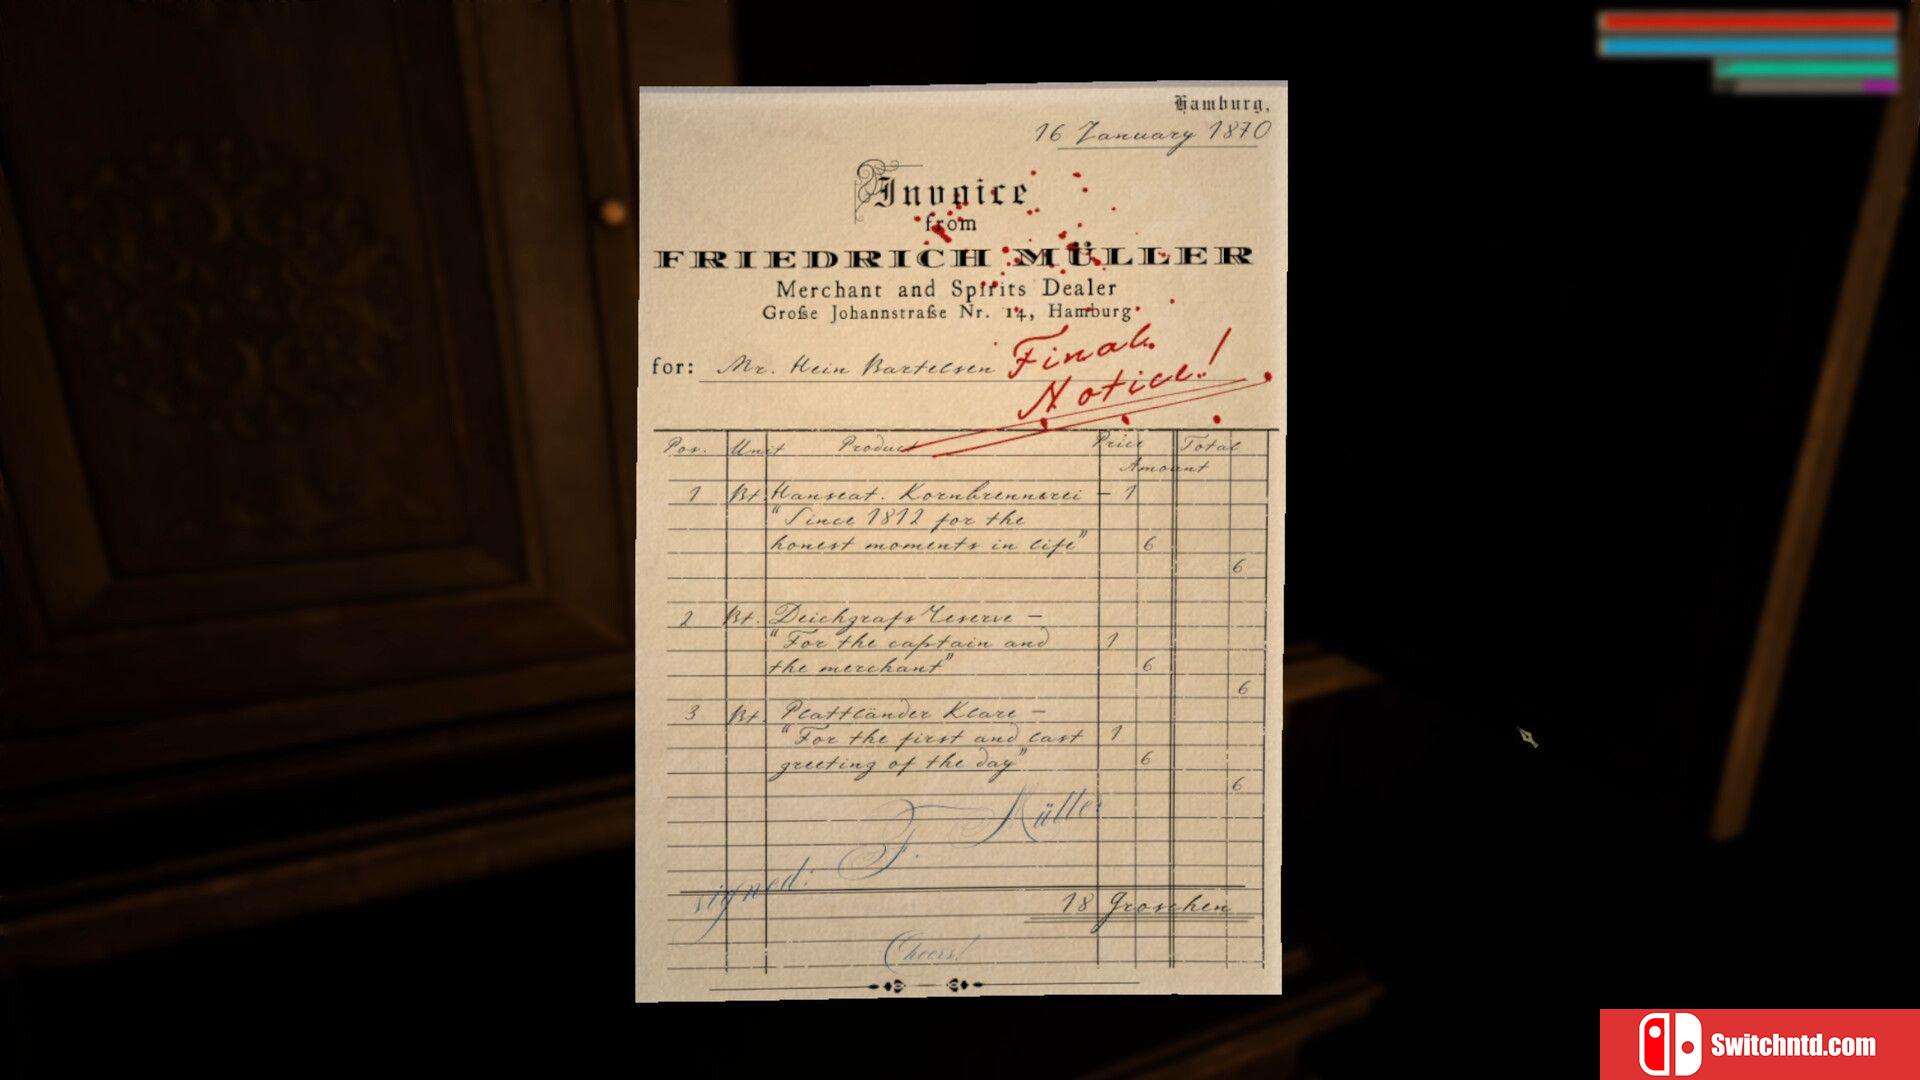 Hamburg,
16 January 1870
Invoice
from
FRIEDRICH MÜLLER
Merchant and Spirits Dealer
Große Johannstraße Nr. 14, Hamburg
for: Mr. Hein Bartelsen
Final
Notice!
Pos. Unit Product Price Total
Amount
1 Bt. Hanseat. Kornbrennerei – 1
"Since 1812 for the
honest moments in life" 6
6
2 Bt. Deichgrafs Reserve –
"For the captain and 1
the merchant" 6
6
3 Bt. Plattländer Klare –
"For the first and last 1
greeting of the day" 6
6
signed: F. Müller
18 Groschen
Cheers!
Switchntd.com